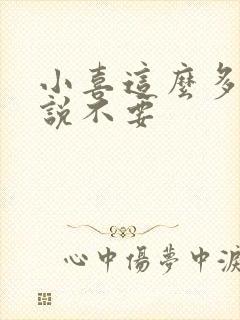 小喜這麼多
說不要
心中傷夢中淚